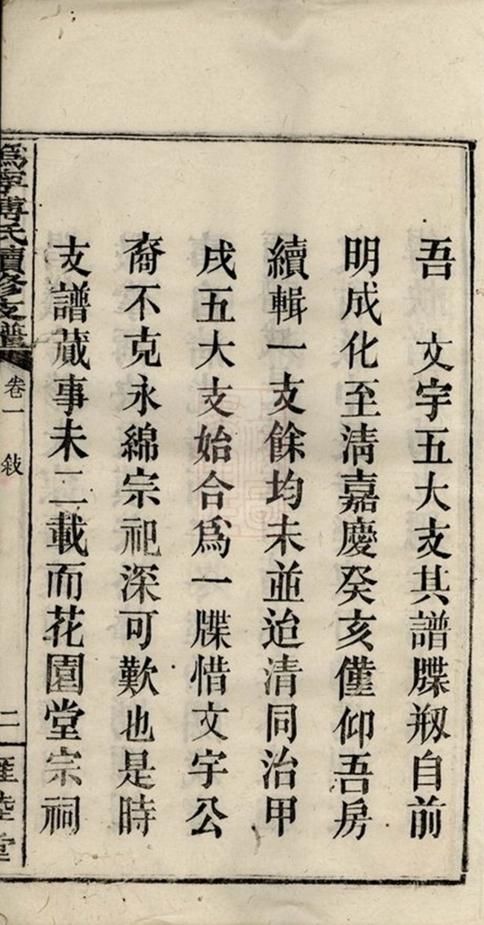 吾　文字五大支其譜牒剏自前
明成化至清嘉慶癸亥僅仰吾房
續輯一支餘均未並迨清同治甲
戌五大支始合爲一牒惜文字公
裔不克永綿宗祀深可歎也是時
支譜蕆事未二載而花園堂宗祠
爲寧傅氏續修支譜
卷一　敘
二